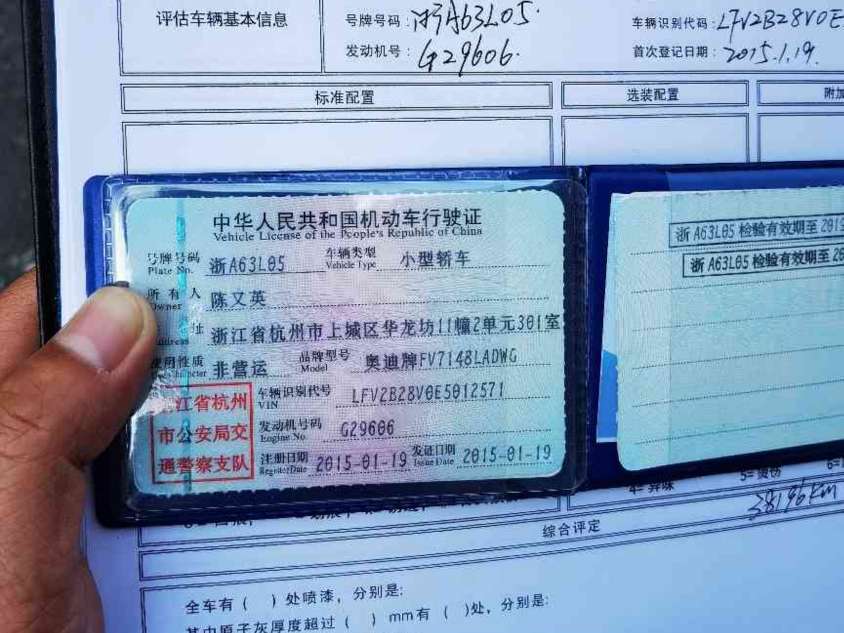 评估车辆基本信息
号牌号码：浙A63L05.
车辆识别代码：LFV2B28V0E
发动机号：G29606.
首次登记日期：2015.1.19.
标准配置
选装配置
附加
中华人民共和国机动车行驶证
Vehicle License of the People's Republic of China
号牌号码 浙A63L05 车辆类型 小型轿车
Plate No. Vehicle Type
所有人 陈又英
Owner
址 浙江省杭州市上城区华龙坊11幢2单元301室
Address
使用性质 非营运 品牌型号 奥迪牌FV7148LADWG
Character Model
江省杭州
市公安局交
通警察支队
车辆识别代号 LFV2B28V0E5012571
VIN
发动机号码 G29606
Engine No.
注册日期 2015-01-19 发证日期 2015-01-19
Register Date Issue Date
浙A63L05检验有效期至201
浙A63L05检验有效期至20
38196KM
综合评定
全车有（ ）处喷漆，分别是：
其中原子灰厚度超过（ ）mm有（ ）处，分别是：